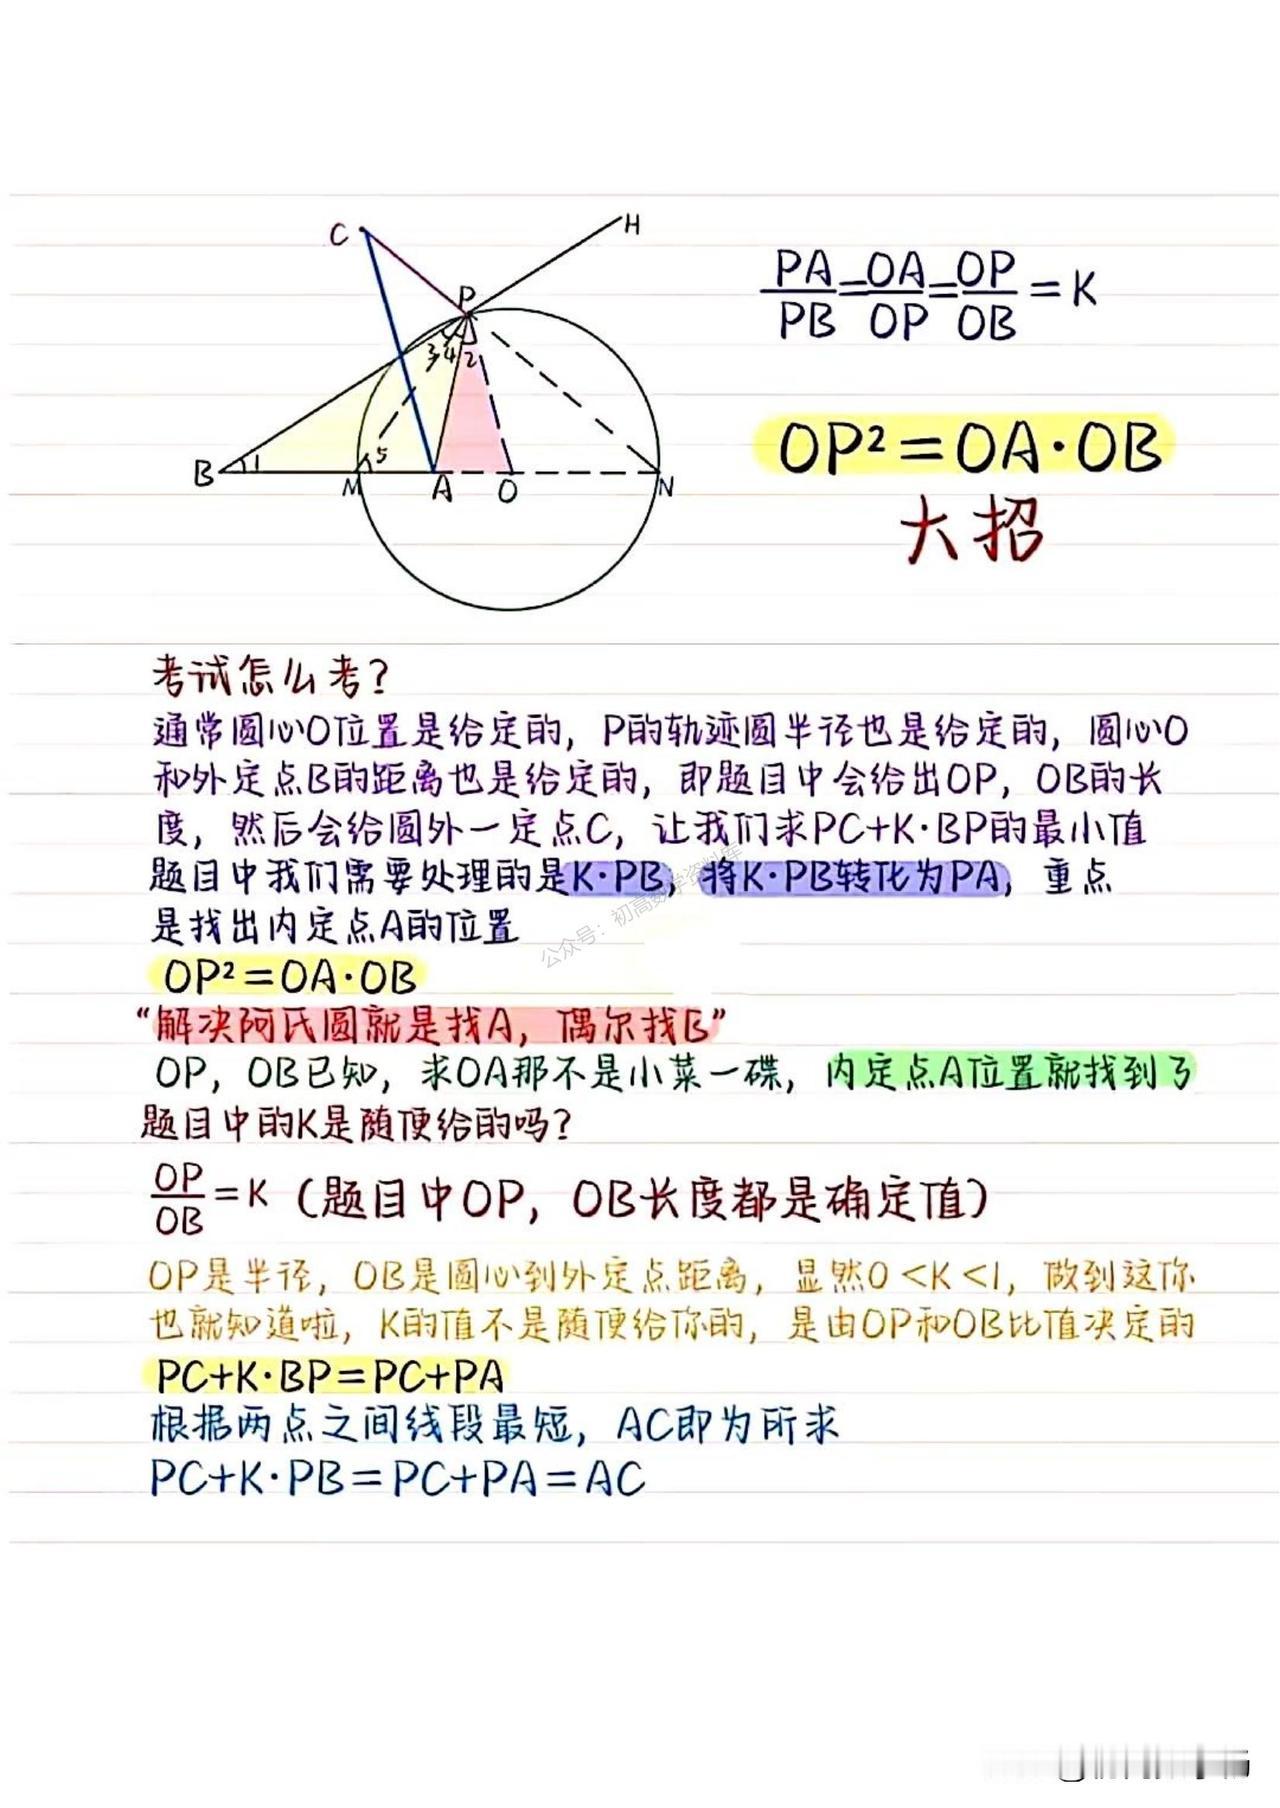 C
H
P
3 4 2
B 1
5
M A O N
PA/PB=OA/OP=OP/OB=K
OP²=OA·OB
大招
考试怎么考?
通常圆心O位置是给定的，P的轨迹圆半径也是给定的，圆心O
和外定点B的距离也是给定的，即题目中会给出OP，OB的长
度，然后会给圆外一定点C，让我们求PC+K·BP的最小值
题目中我们需要处理的是K·PB，将K·PB转化为PA，重点
是找出内定点A的位置
公众号：初高数学资料库
OP²=OA·OB
“解决阿氏圆就是找A，偶尔找B”
OP，OB已知，求OA那不是小菜一碟，内定点A位置就找到了
题目中的K是随便给的吗?
OP/OB=K（题目中OP，OB长度都是确定值）
OP是半径，OB是圆心到外定点距离，显然0<K<1，做到这你
也就知道啦，K的值不是随便给你的，是由OP和OB比值决定的
PC+K·BP=PC+PA
根据两点之间线段最短，AC即为所求
PC+K·PB=PC+PA=AC